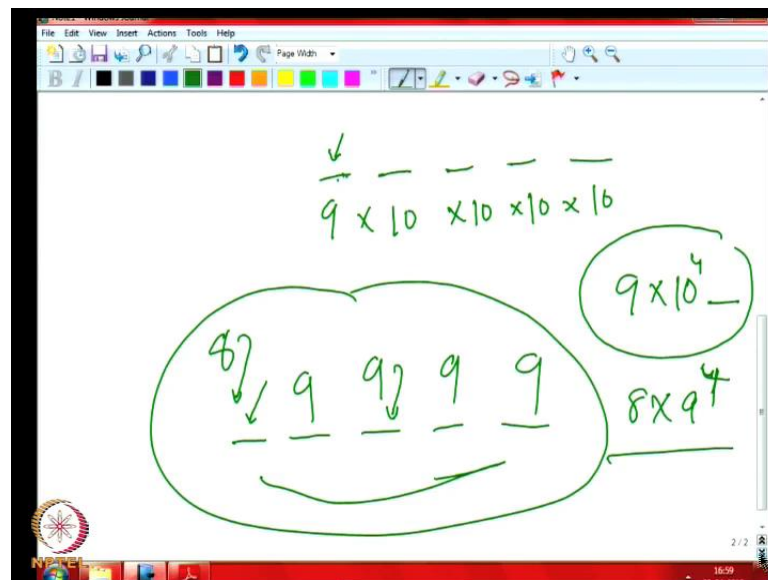 File Edit View Insert Actions Tools Help
Page Width
B I
9 × 10 × 10 × 10 × 10
9 × 10⁴ _
8 9 9 9 9
8 × 9⁴
2 / 2
NPTEL
16:59